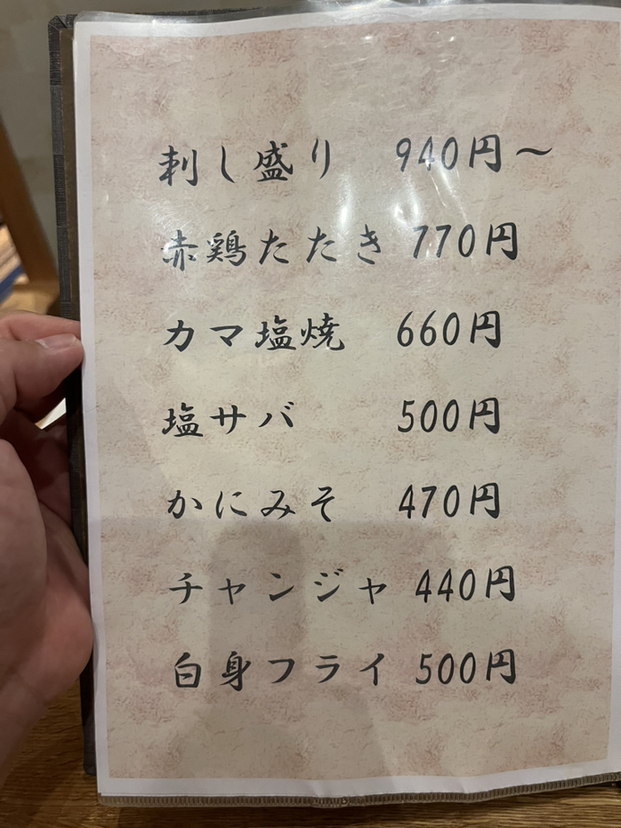 刺し盛り 940円～
赤鶏たたき 770円
カマ塩焼 660円
塩サバ 500円
かにみそ 470円
チャンジャ 440円
白身フライ 500円